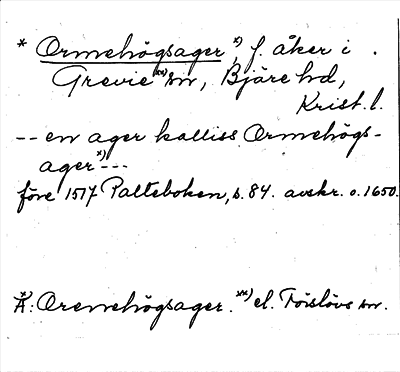 * Ormehögsager,x) f. åker i
Grevie xx) sn, Bjäre hd,
Krist. l.
-- en ager kalliss Ormehögs-
ager x) ---
före 1517 Palteboken, s. 84. avskr. o. 1650.
x) A: Oremehögsager. xx) el. Förslövs sn.